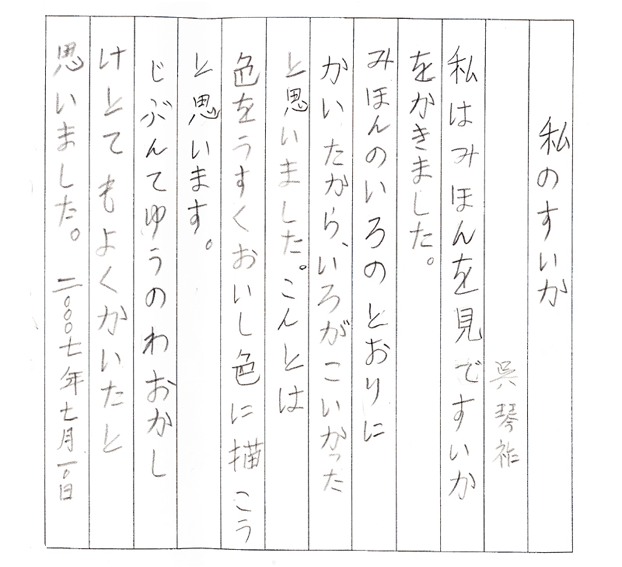 私のすいか
呉琴祚
私はみほんを見ですいか
をかきました。
みほんのいろのとおりに
かいたから、いろがこいかった
と思いました。こんとは
色をうすくおいし色に描こう
と思います。
じぶんてゆうのわおかし
けとてもよくかいたと
思いました。二〇〇七年七月一〇日